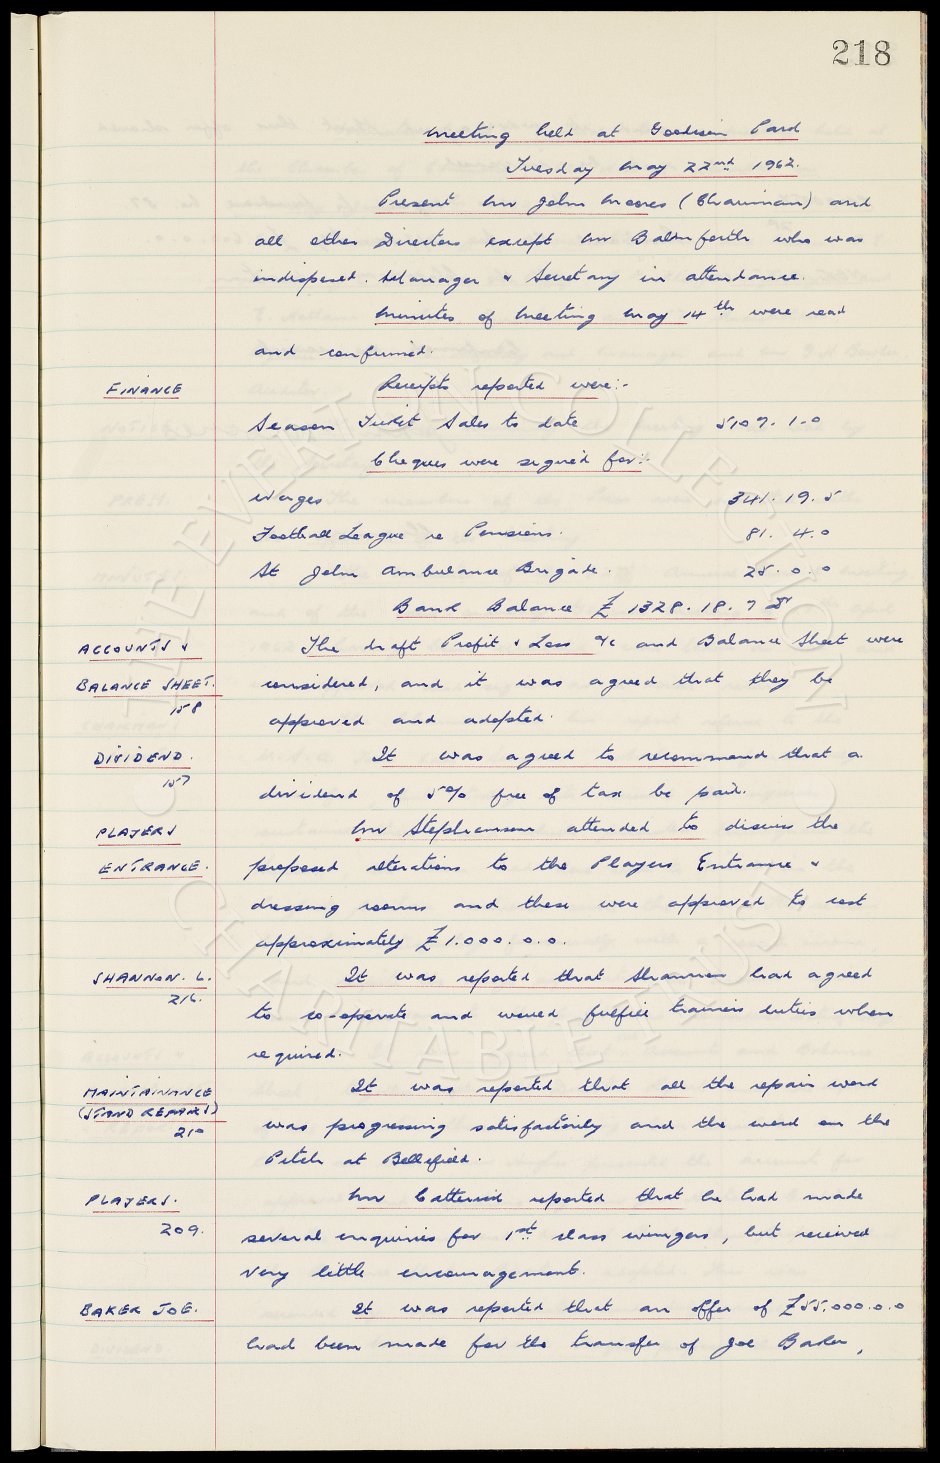 218
Meeting held at Goodison Park
Tuesday May 22nd 1962.
Present Mr John Moores (Chairman) and
all other Directors except Mr Balmforth who was
indisposed. Manager & Secretary in attendance.
Minutes of Meeting May 14th were read
and confirmed.
FINANCE Receipts reported were:-
Season Ticket Sales to date 5109. 1. 0
Cheques were signed for:-
Wages 341. 19. 5
Football League re Pensions. 81. 4. 0
St John Ambulance Brigade. 25. 0. 0
Bank Balance £1328. 18. 7 Dr
ACCOUNTS & The draft Profit & Loss a/c and Balance Sheet were
BALANCE SHEET. considered, and it was agreed that they be
158
approved and adopted.
DIVIDEND. It was agreed to recommend that a
157
dividend of 5% free of tax be paid.
PLAYERS Mr Stephenson attended to discuss the
ENTRANCE. proposed alterations to the Players Entrance &
dressing rooms and these were approved to cost
approximately £1.000. 0. 0.
SHANNON. L. It was reported that Shannon had agreed
216.
to co-operate and would fulfill trainers duties when
required.
MAINTAINANCE It was reported that all the repair work
(STAND REPAIRS)
was progressing satisfactorily and the work on the
210
Pitch at Bellefield.
PLAYERS. Mr Catterick reported that he had made
209. several enquiries for 1st class wingers, but received
very little encouragement.
BAKER JOE. It was reported that an offer of £55,000. 0. 0
had been made for the transfer of Joe Baker,
THE EVERTON COLLECTION
CHARITABLE TRUST